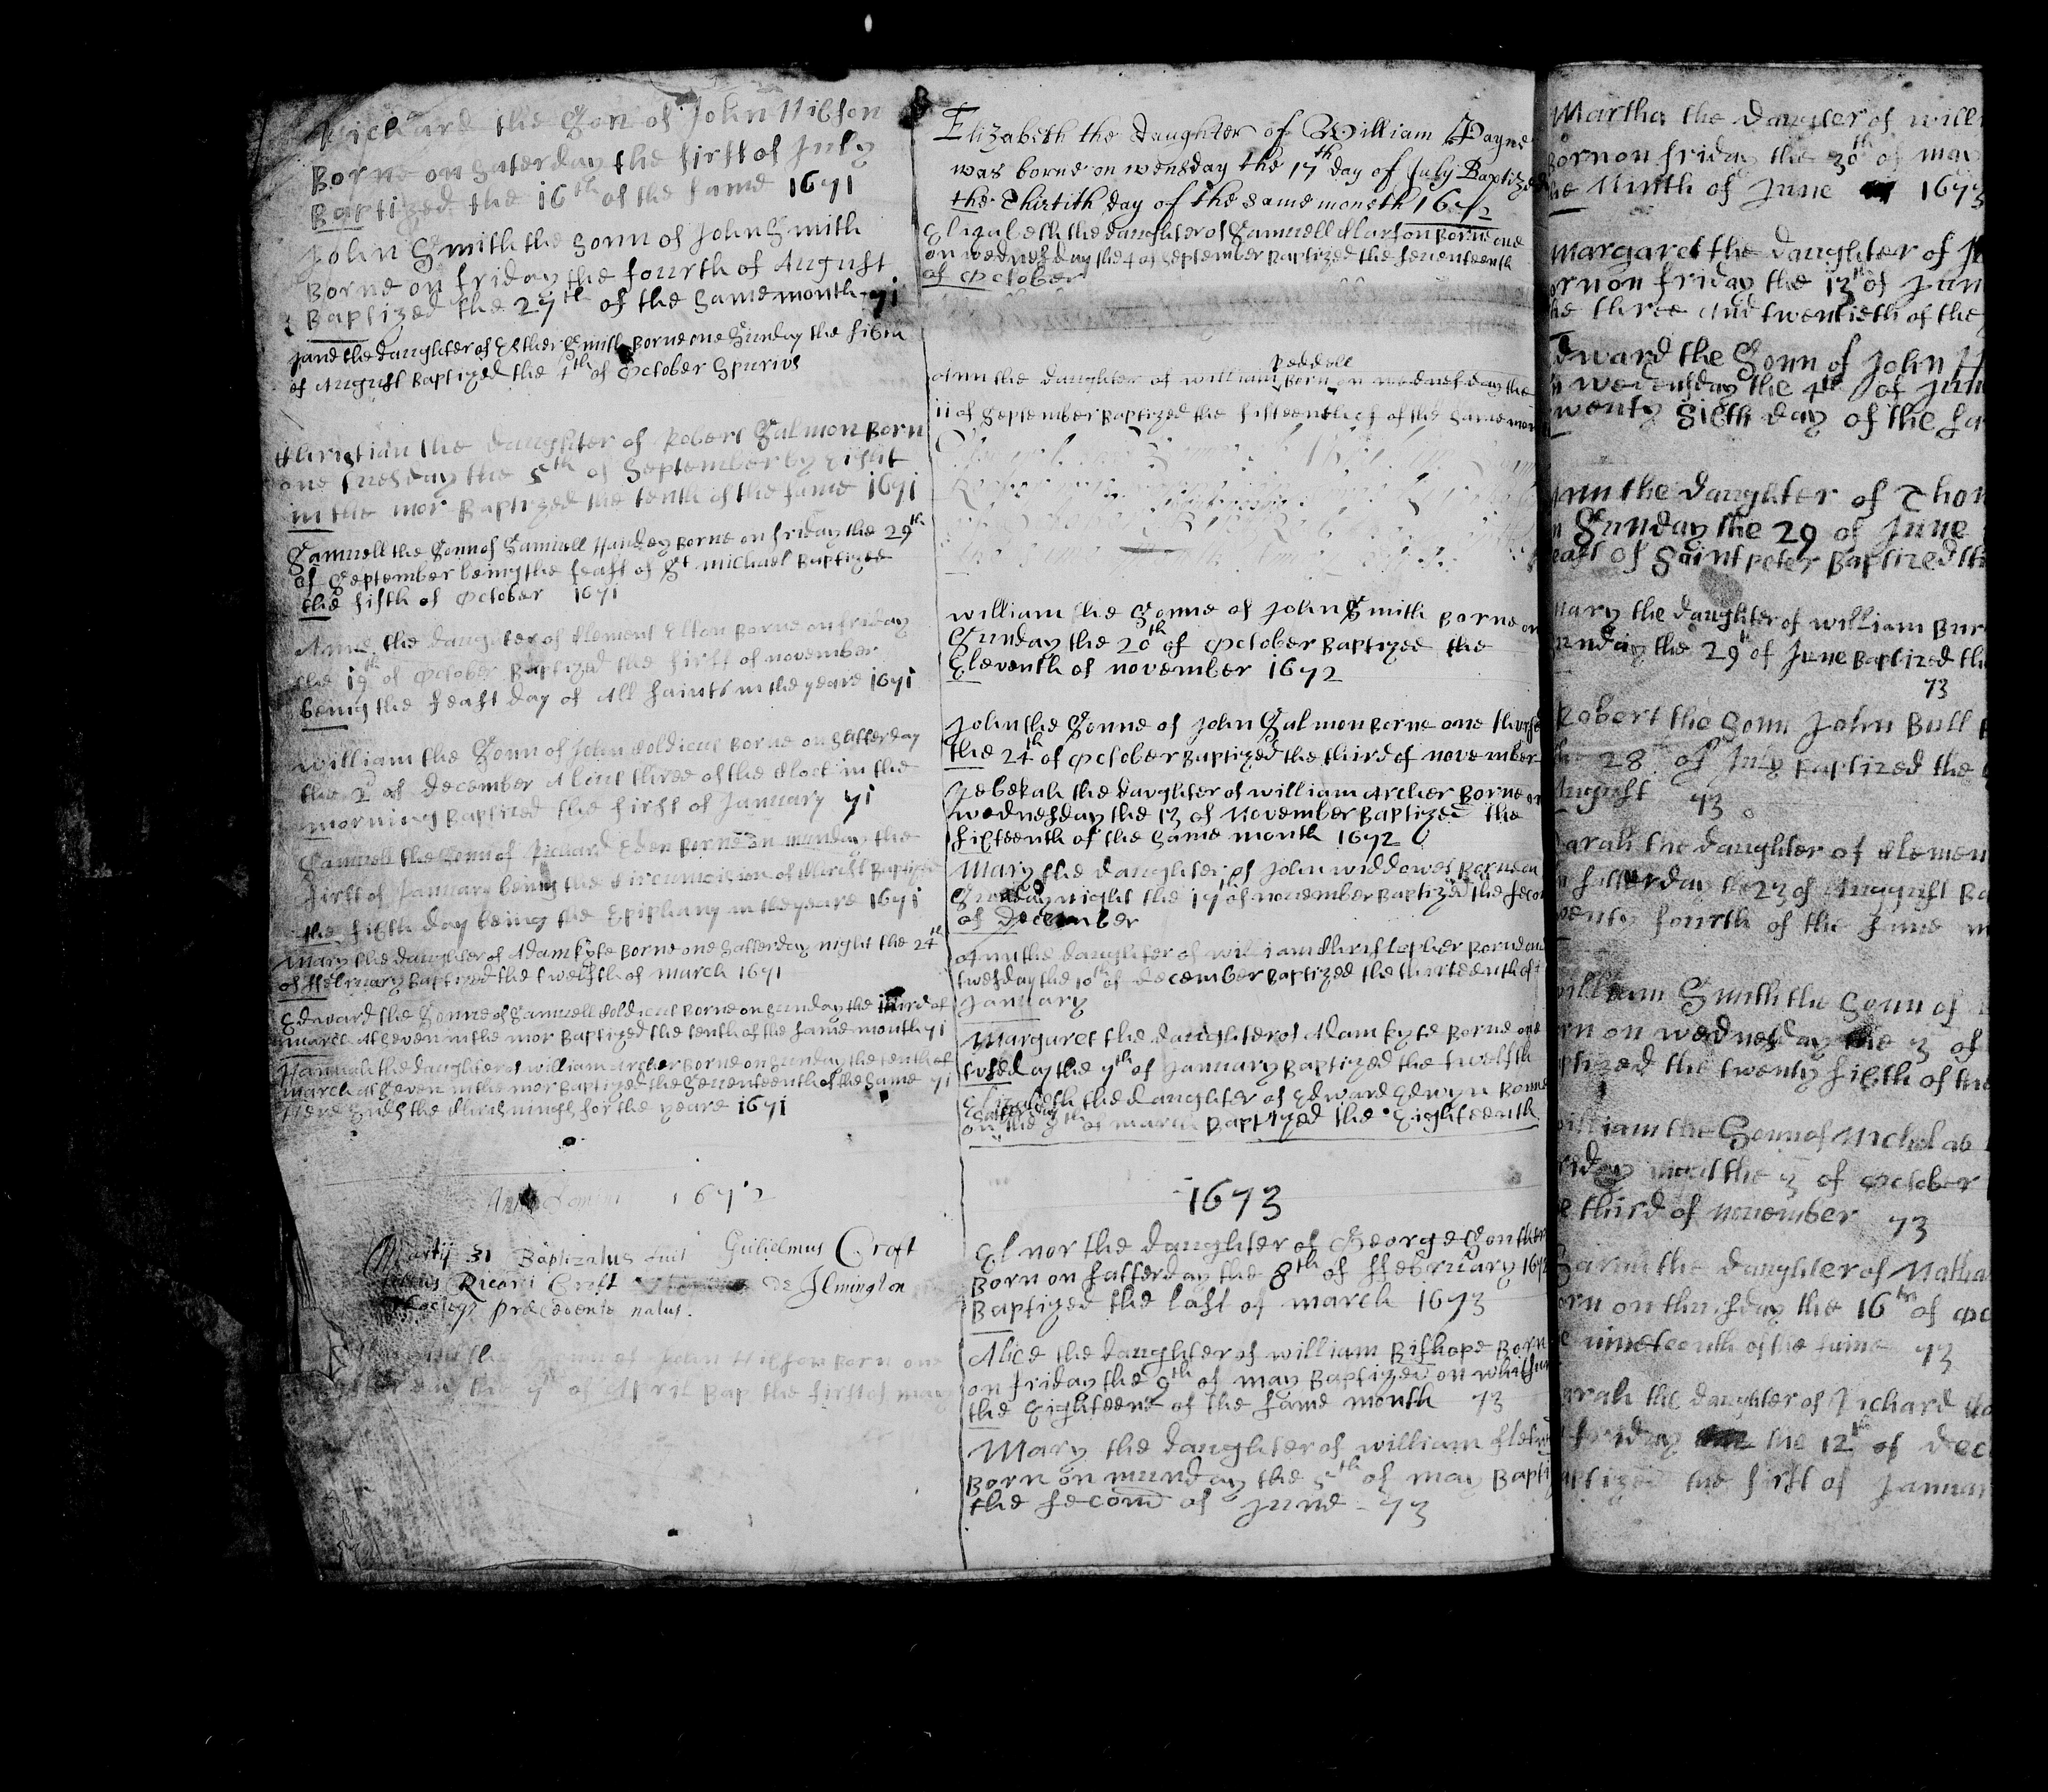 Richard the Son of John Hibson
Borne on Saterday the first of July
Baptized the 16th of the same 1671
John Smith the Sonn of John Smith
Borne on friday the fourth of August
Baptized the 27th of the Same month 71
Jane the daughter of Esther Smith Borne one Sunday the sixth
of August Baptized the 1th of October Spurios
Christian the daughter of Robert Salmon Born
one tuesday the 5th of September by Eight
in the mor Baptized the tenth of the same 1671
Samuell the Sonn of Samuell Handey Borne on friday the 29th
of September being the feast of St michael Baptized
the fifth of October 1671
Anne the daughter of Clement Elton Borne on friday
the 19th of October Baptized the first of november
being the feast day of All Saints in the yeare 1671
William the Sonn of John Coldicut Borne on Satterday
the 2d of december About three of the Clock in the
morning Baptized the first of January 71
Samuell the Sonn of Richard Eden Borne on munday the
first of January being the Circumcision of Christ Baptized
the sixth day being the Epiphany in the yeare 1671
Mary the daughter of Adam Kyte Borne one Satterday night the 24th
of ffebruary Baptized the twelfth of march 1671
Edward the Sonne of Samuell Coldicut Borne on Sunday the third of
march At Seven in the mor Baptized the tenth of the same month 71
Hannah the daughter of william Archer Borne on Sunday the tenth of
march at Seven in the mor Baptized the Seventeenth of the Same 71
Here Ends the Chrisnings for the yeare 1671
Anno Domini 1672
Martij 31 Baptizatus fuit Guilielmus Croft
filius Ricardi Croft de Ilmington
praecedente natus.
the Sonn of John Hibson Born one
the 9th of April Bap the first of may
Elizabeth the daughter of William Payne
was borne on wensday the 17th day of July Baptized
the Thirtith day of the same moneth 1672
Elizabeth the daughter of Samuell Clarson Borne one
on wednesday the 4 of September Baptized the seventeenth
of October
peddell
Ann the daughter of william Born on wednesday the
11 of September Baptized the fifteenth of of the Same mon
william the Sonne of John Smith Borne on
Sunday the 20th of October Baptized the
Eleventh of november 1672
John the Sonne of John Salmon Borne one thurs
the 24th of October Baptized the third of november
Rebekah the daughter of william Archer Borne on
wednesday the 13 of November Baptized the
sixteenth of the Same month 1672
Mary the daughter of John widdowes Borne on
Sunday night the 17 of november Baptized the seco
of december
Ann the daughter of william Christopher Borne one
tuesday the 10th of december Baptized the thirteenth of
January
Margaret the daughter of Adam Kyte Borne one
tusday the 7th of January Baptized the twelfth
Elizabeth the daughter of Edward Edwyn Borne
Satterday
on the 8th of march Baptized the Eighteenth
1673
Elnor the daughter of George
Born on satterday the 8th of ffebruary 1672
Baptized the last of march 1673
Alice the daughter of william Bishope Born
on friday the 9th of may Baptized on whitsun
the Eighteene of the same month 73
Mary the daughter of william
Born on munday the 5th of may Bapti
the second of June 73
Martha the daughter of willi
Born on friday the 30th of may
the Ninth of June 1673
Margaret the daughter of
orn on friday the 13th of Jun
he three And twentieth of the
Edward the Sonn of John H
n wedensday the 4th of Jun
wenty Sixth day of the sa
Ann the daughter of Thom
n Sunday the 29 of June
feast of Saint peter Baptized th
Mary the daughter of william Bur
unday the 29th of June Baptized the
73
Robert the Sonn John Bull
he 28th of July Baptized the
August 73
Sarah the daughter of Clemen
n satterday the 23 of August Ba
wenty fourth of the same m
william Smith the Sonn of
rn on wednesday the 3 of
ptized the twenty sixth of the
william the Sonn of Nicholas
riday the 3 of October
e third of november 73
Sarah the daughter of Nathan
orn on thursday the 16th of Oc
e nineteenth of the same 73
arah the daughter of Richard
friday the 12th of dec
aptized the first of January